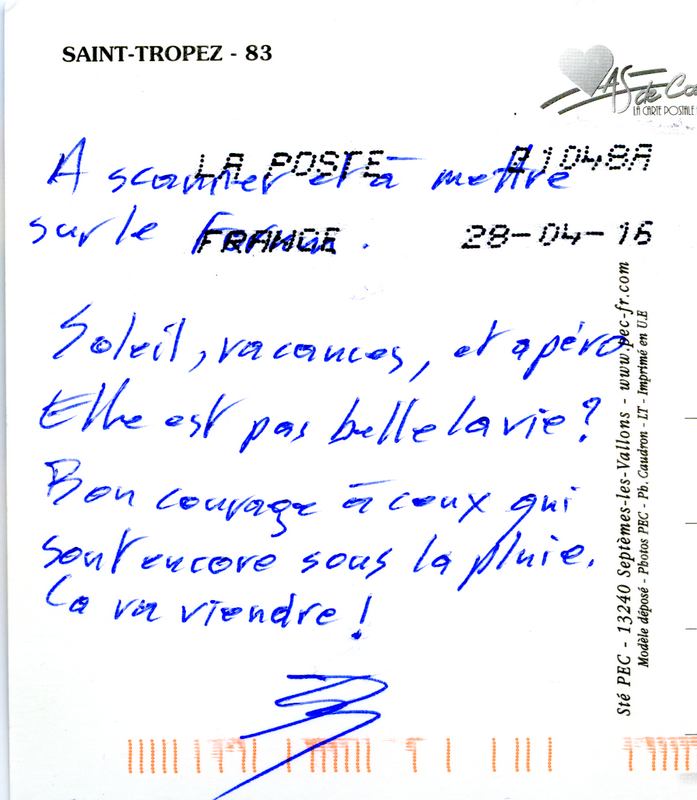 SAINT-TROPEZ - 83
AS de Cœ
LA CARTE POSTALE
LA POSTE 21048A
A scanner et à mettre
sur le Forum.
FRANCE 28-04-16
Soleil, vacances, et apéro
Elle est pas belle la vie ?
Bon courage à ceux qui
sont encore sous la pluie.
Ca va viendre !
Sté PEC - 13240 Septèmes-les-Vallons - www.pec-fr.com
Modèle déposé - Photos PEC - Ph. Caudron - LT - Imprimé en U.E